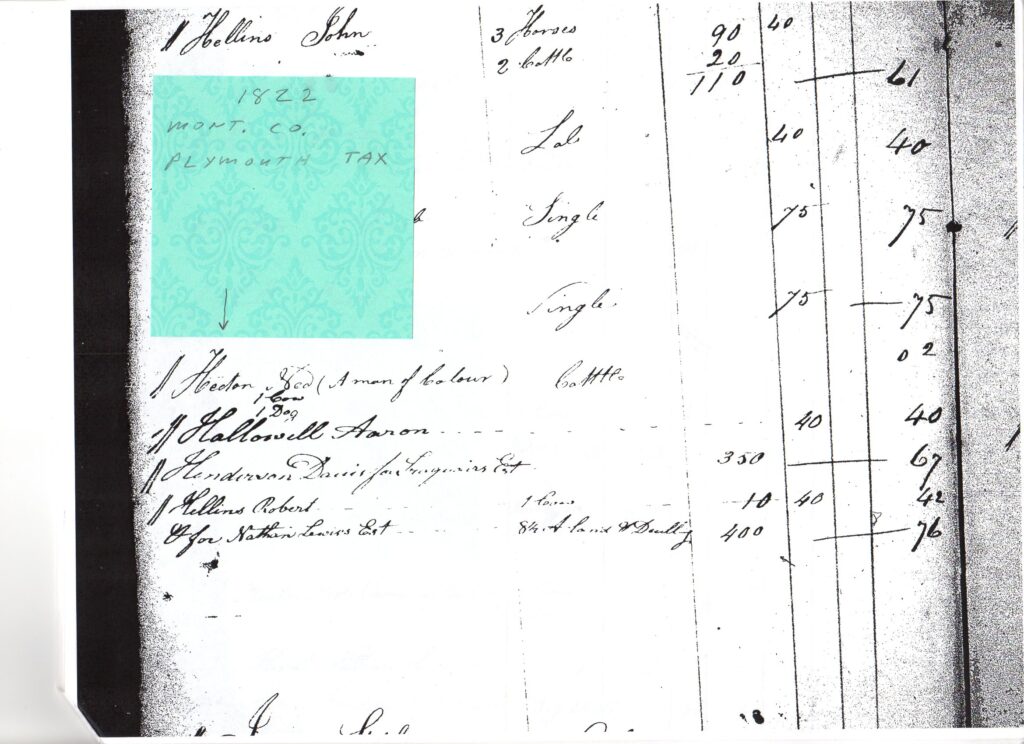 Hellins John 3 Horses 90 40
2 Cattle 20
110 61
1822
MONT. CO.
PLYMOUTH TAX
40 40
Single 75 75
Single 75 75
02
Hector Ned (A man of Colour) Cattle
1 Cow
1 Dog
Hallowell Aaron 40 40
Henderson for Est 350 67
Hellins Robert 1 Cow 10 40 42
for Nathan Lewis Est land & 400 76